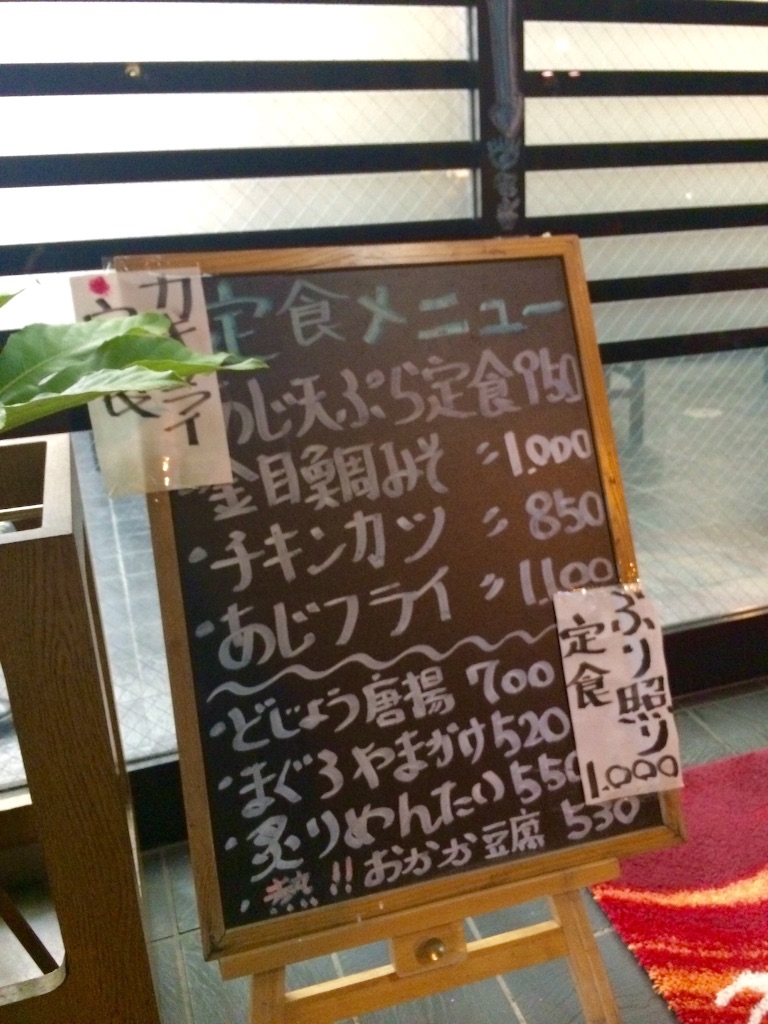 定食メニュー
あじ天ぷら定食 950
金目鯛みそ 〃 1,000
・チキンカツ 〃 850
・あじフライ 〃 1,100
・どじょう唐揚 700
・まぐろやまかけ 520
・炙りめんたい 550
・熱!!おかか豆腐 530
ぶり照り
定食
1,000
フライ